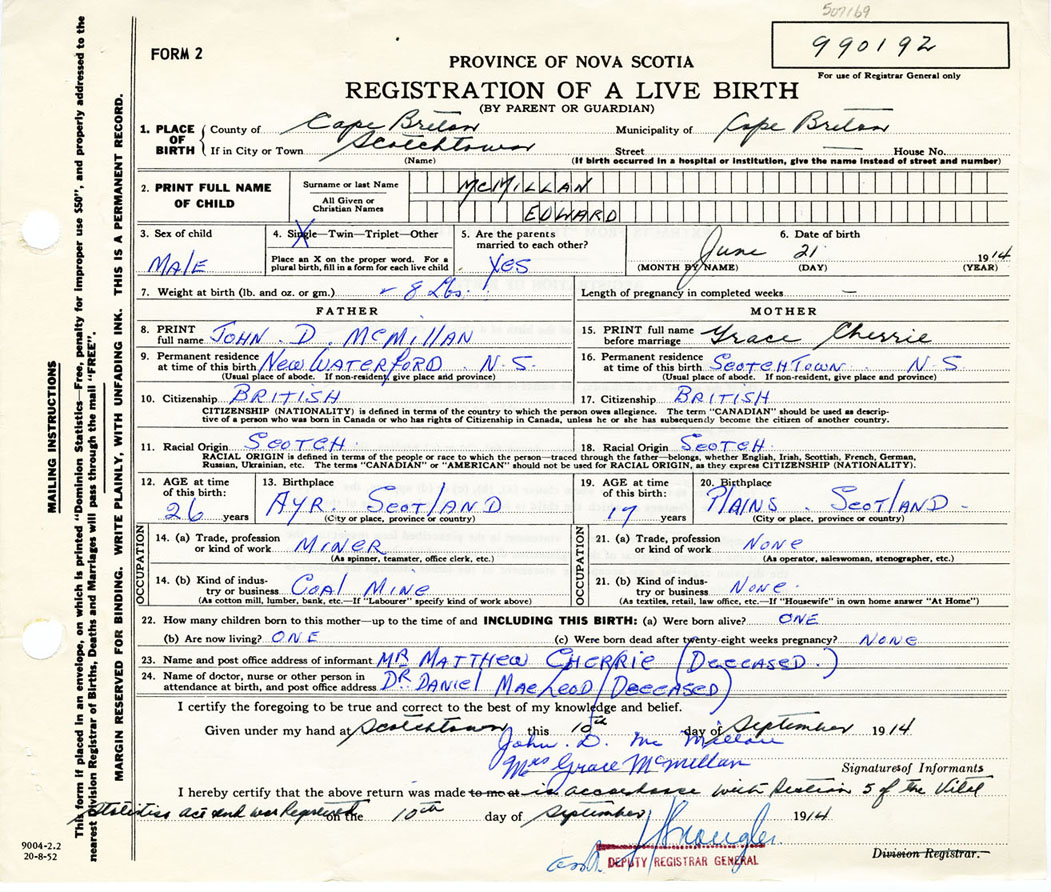 507169
FORM 2
990192
For use of Registrar General only
PROVINCE OF NOVA SCOTIA
REGISTRATION OF A LIVE BIRTH
(BY PARENT OR GUARDIAN)
1. PLACE OF BIRTH County of Cape Breton Municipality of Cape Breton
If in City or Town Scotchtown Street — House No.
(Name) (If birth occurred in a hospital or institution, give the name instead of street and number)
2. PRINT FULL NAME OF CHILD Surname or last Name McMILLAN
All Given or Christian Names EDWARD
3. Sex of child MALE
4. Single—Twin—Triplet—Other X
Place an X on the proper word. For a plural birth, fill in a form for each live child
5. Are the parents married to each other? YES
6. Date of birth
June 21 1914
(MONTH BY NAME) (DAY) (YEAR)
7. Weight at birth (lb. and oz. or gm.) 8 Lbs. Length of pregnancy in completed weeks —
FATHER MOTHER
8. PRINT full name JOHN. D. McMILLAN
15. PRINT full name before marriage Grace Cherrie
9. Permanent residence at time of this birth NEW WATERFORD N.S.
(Usual place of abode. If non-resident, give place and province)
16. Permanent residence at time of this birth SCOTCHTOWN N.S
(Usual place of abode. If non-resident, give place and province)
10. Citizenship BRITISH 17. Citizenship BRITISH
CITIZENSHIP (NATIONALITY) is defined in terms of the country to which the person owes allegiance. The term "CANADIAN" should be used as descrip-
tive of a person who was born in Canada or who has rights of Citizenship in Canada, unless he or she has subsequently become the citizen of another country.
11. Racial Origin SCOTCH 18. Racial Origin SCOTCH
RACIAL ORIGIN is defined in terms of the people or race to which the person—traced through the father—belongs, whether English, Irish, Scottish, French, German,
Russian, Ukrainian, etc. The terms "CANADIAN" or "AMERICAN" should not be used for RACIAL ORIGIN, as they express CITIZENSHIP (NATIONALITY).
12. AGE at time of this birth: 26 years
13. Birthplace AYR. SCOTLAND
(City or place, province or country)
19. AGE at time of this birth: 17 years
20. Birthplace PLAINS. SCOTLAND.
(City or place, province or country)
OCCUPATION
14. (a) Trade, profession or kind of work MINER
(As spinner, teamster, office clerk, etc.)
14. (b) Kind of indus-
try or business COAL MINE
(As cotton mill, lumber, bank, etc.—If "Labourer" specify kind of work above)
OCCUPATION
21. (a) Trade, profession or kind of work NONE
(As operator, saleswoman, stenographer, etc.)
21. (b) Kind of indus-
try or business NONE.
(As textiles, retail, law office, etc.—If "Housewife" in own home answer "At Home")
22. How many children born to this mother—up to the time of and INCLUDING THIS BIRTH: (a) Were born alive? ONE
(b) Are now living? ONE (c) Were born dead after twenty-eight weeks pregnancy? NONE
23. Name and post office address of informant MR MATTHEW CHERRIE (DECEASED.)
24. Name of doctor, nurse or other person in attendance at birth, and post office address DR. DANIEL MACLEOD (DECEASED)
I certify the foregoing to be true and correct to the best of my knowledge and belief.
Given under my hand at Scotchtown this 10th day of September 1914
John. D. McMillan
Mrs Grace McMillan
Signatures of Informants
I hereby certify that the above return was made to me at in accordance with Section 5 of the Vital
Statistics act and was Registered on the 10th day of September 1914
DEPUTY REGISTRAR GENERAL
Division Registrar.
9004-2.2
20-8-52
MAILING INSTRUCTIONS
This form if placed in an envelope, on which is printed "Dominion Statistics—Free, penalty for improper use $50", and properly addressed to the
nearest Division Registrar of Births, Deaths and Marriages will pass through the mail "FREE".
MARGIN RESERVED FOR BINDING. WRITE PLAINLY, WITH UNFADING INK. THIS IS A PERMANENT RECORD.